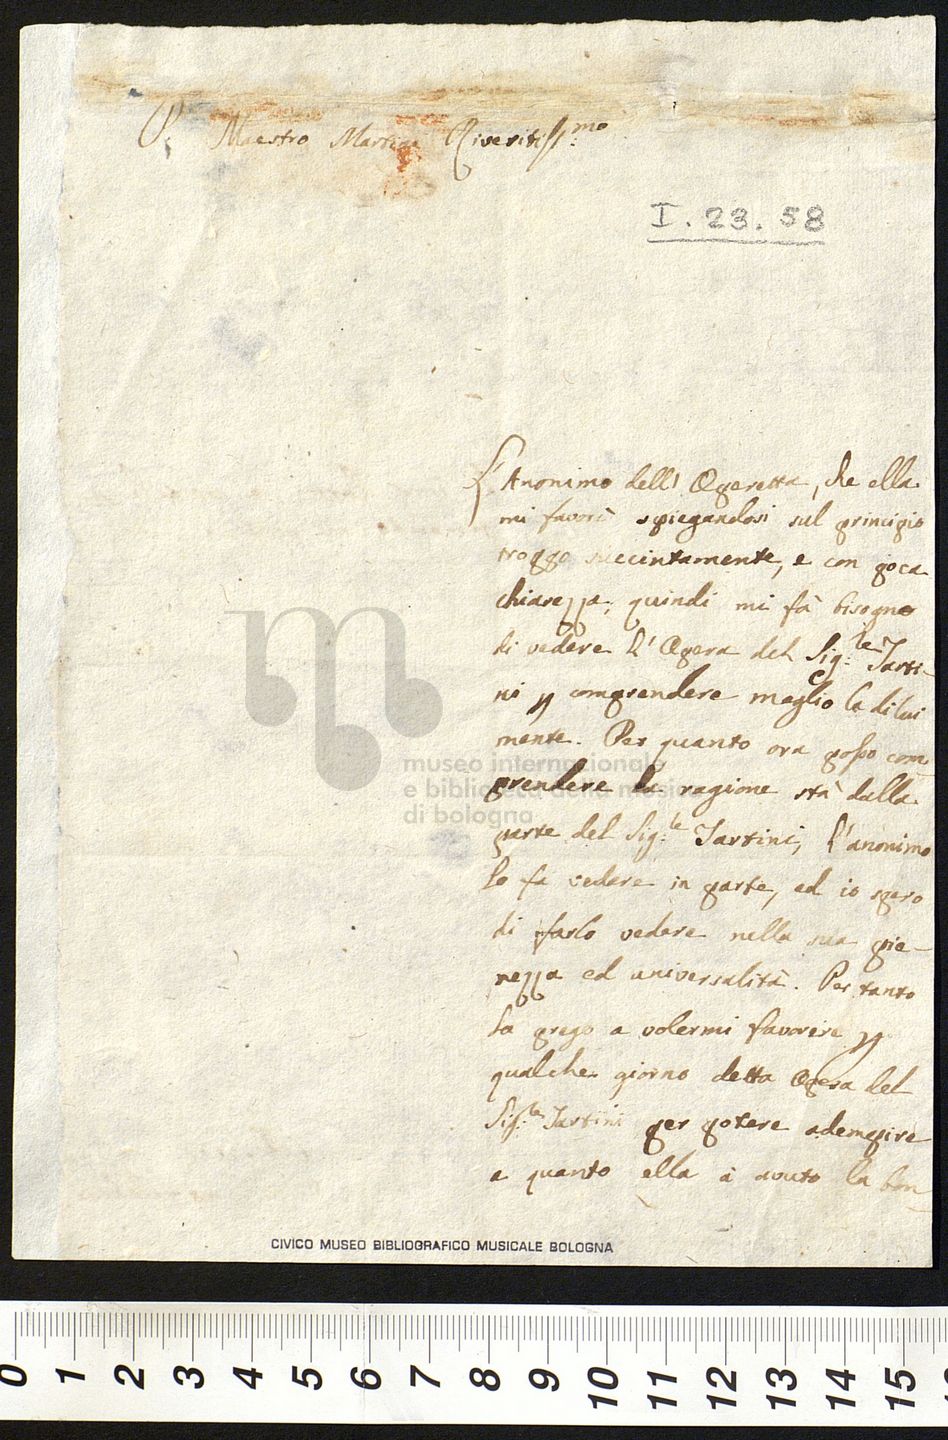 P. Maestro Martini Riveritiss:mo
I. 23. 58
L'Anonimo dell' Operetta, che ella
mi favorì spiegandosi sul principio
troppo succintamente, e con poca
chiarezza; quindi mi fà bisogno
di vedere l'Opera del Sig:le Tarti-
ni p comprendere meglio la di lui
mente. Per quanto ora posso com
prendere la ragione stà dalla
parte del Sig:le Tartini, l'anonimo
lo fa vedere in parte, ed io spero
di farlo vedere nella sua pie-
nezza ed universalità. Per tanto
la prego a volermi favorire p
qualche giorno detta Opera del
Sig:le Tartini per potere adempire
a quanto ella à avuto la bon
museo internazionale
e biblioteca della musica
di bologna
CIVICO MUSEO BIBLIOGRAFICO MUSICALE BOLOGNA
0 1 2 3 4 5 6 7 8 9 10 11 12 13 14 15